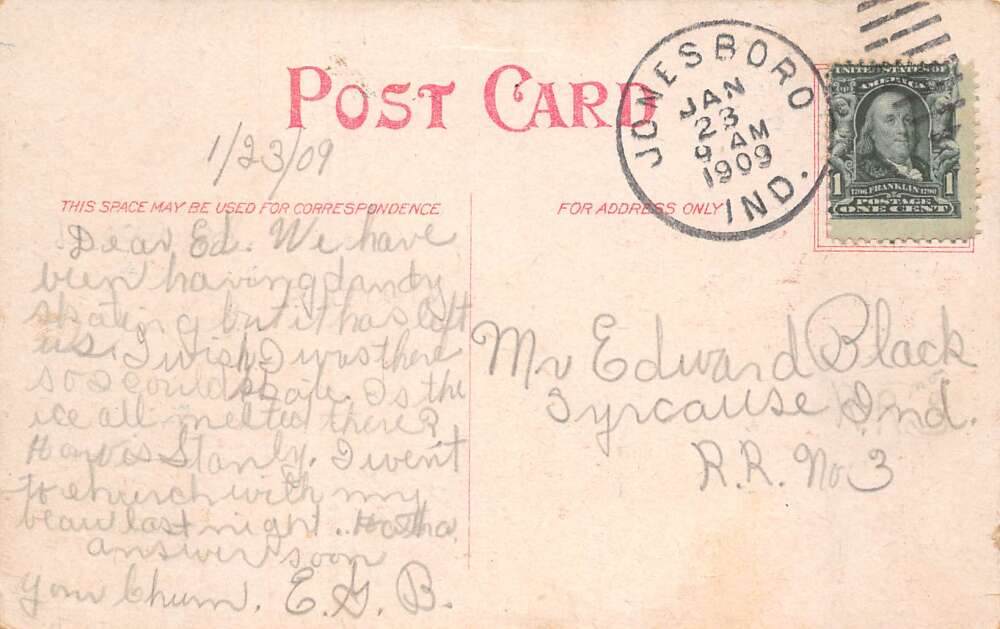 POST CARD
JONESBORO
JAN
23
9 AM
1909
IND.
UNITED STATES OF
AMERICA
1 1706 FRANKLIN 1790 1
POSTAGE
ONE CENT
1/23/09
THIS SPACE MAY BE USED FOR CORRESPONDENCE
FOR ADDRESS ONLY
Dear Ed. We have
been having dandy
skating but it has left
us. I wish I was there
so I could skate. Is the
ice all melted there?
How is Stanly. I went
to church with my
beau last night. Ha Ha
answer soon
your Chum. E. G. B.
Mr Edward Black
Syrcause Ind.
R.R. No 3